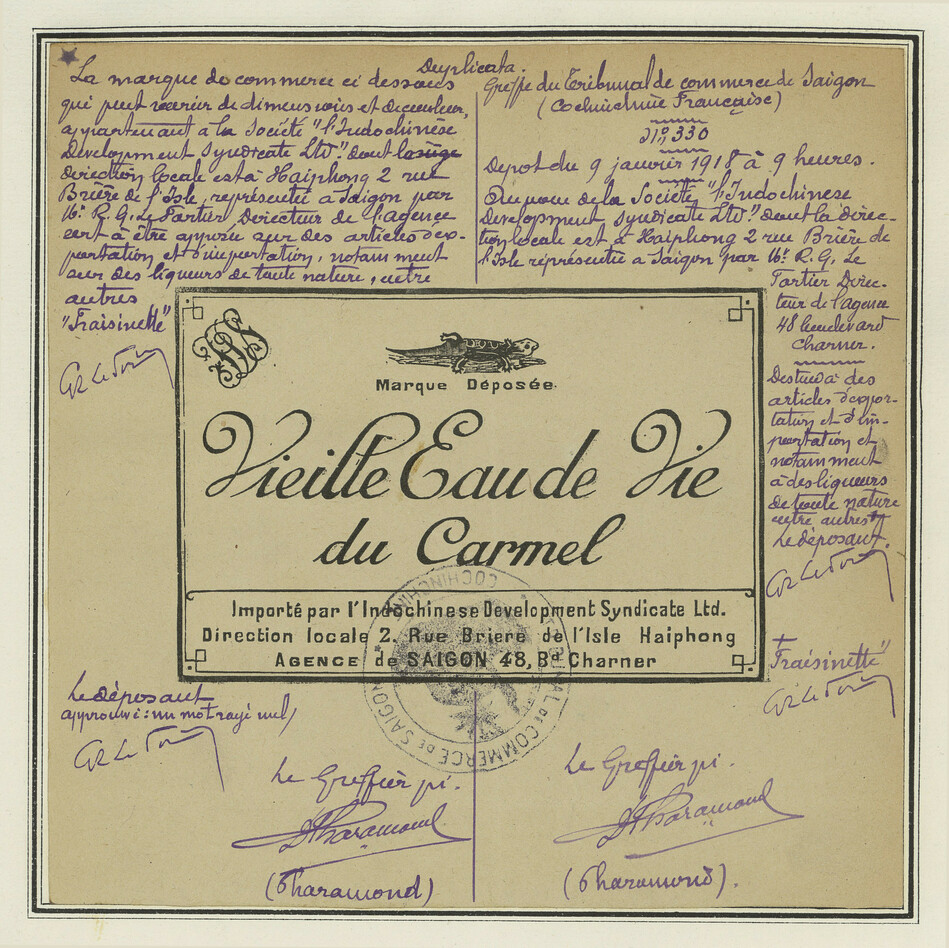 Duplicata.
La marque de commerce ci dessous
qui peut varier de dimensions et de couleur,
appartenant à la Société "l'Indochinese
Development Syndicate Ltd." dont la siège
direction locale est à Haiphong 2 rue
Brière de l'Isle, représentée à Saigon par
Mr. R. G. Le Fortier Directeur de l'agence
sert à être apposée sur des articles d'ex-
portation et d'importation, notamment
sur des liqueurs de toute nature, entre
autres
"Fraisinette"
Greffe du Tribunal de commerce de Saigon
(Cochinchine Française)
No. 330
Depot du 9 janvier 1918 à 9 heures.
Au nom de la Société "l'Indochinese
Development Syndicate Ltd." dont la direc-
tion locale est à Haiphong 2 rue Brière de
l'Isle représentée à Saigon par Mr. R. G. Le
Fortier Direc-
teur de l'agence
48 boulevard
Charner.
Destiné à des
articles d'expor-
tation et d'im-
portation et
notamment
à des liqueurs
de toute nature
entre autres
Le déposant.
"Fraisinette"
Marque Déposée
Vieille Eau de Vie
du Carmel
Importé par l'Indochinese Development Syndicate Ltd.
Direction locale 2. Rue Briere de l'Isle Haiphong
AGENCE de SAIGON 48, Bd. Charner
TRIBUNAL DE COMMERCE DE SAIGON
COCHINCHINE
Le déposant
approuvé : un mot rayé nul
Le Greffier pi.
Pharamond
(Pharamond)
Le Greffier pi.
Pharamond
(Pharamond).